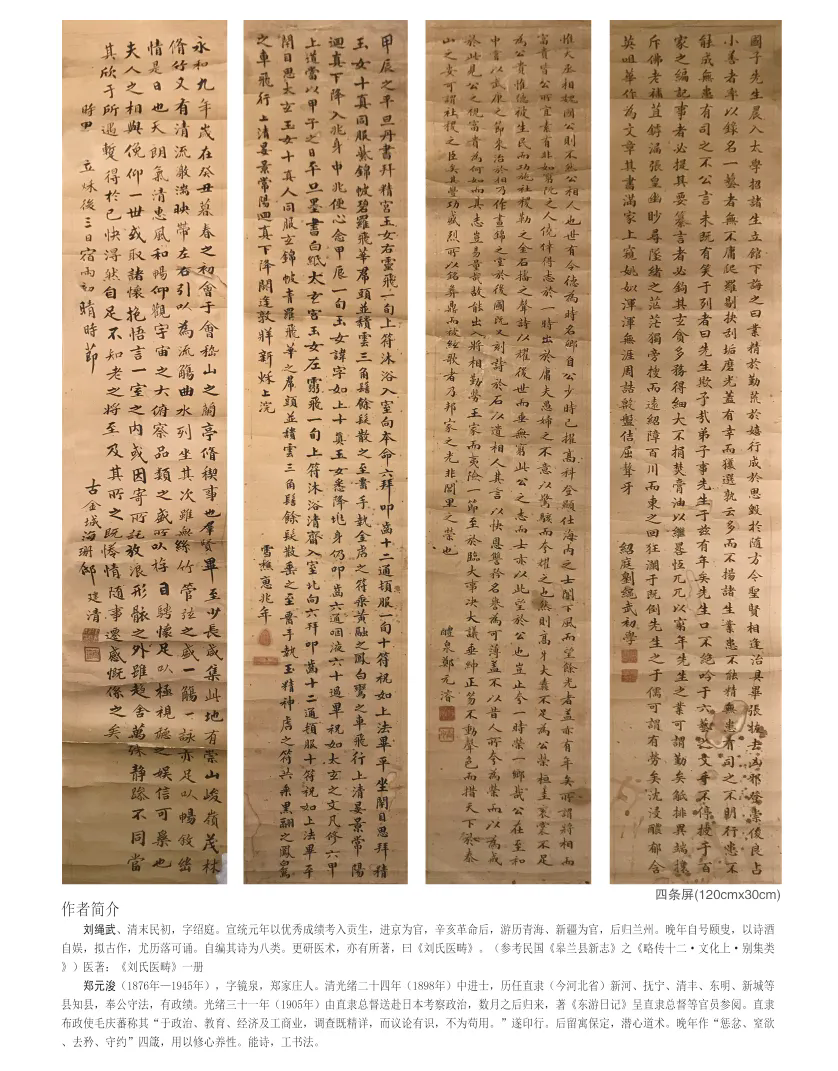 國子先生晨入太學招諸生立館下誨之曰業精於勤荒於嬉行成於思毀於隨方今聖賢相逢治具畢張拔去凶邪登崇俊良占
小善者率以錄名一藝者無不庸爬羅剔抉刮垢磨光蓋有幸而獲選孰云多而不揚諸生業患不能精無患有司之不明行患不
能成無患有司之不公言未既有笑于列者曰先生欺予哉弟子事先生于茲有年矣先生口不絕吟于六藝之文手不停披于百
家之編記事者必提其要纂言者必鉤其玄貪多務得細大不捐焚膏油以繼晷恆兀兀以窮年先生之業可謂勤矣觝排異端攘
斥佛老補苴罅漏張皇幽眇尋墜緒之茫茫獨旁搜而遠紹障百川而東之回狂瀾于既倒先生之于儒可謂有勞矣沈浸醲郁含
英咀華作為文章其書滿家上窺姚姒渾渾無涯周誥殷盤佶屈聱牙
紹庭劉繩武初學
惟大丞相魏國公則不然公相人也世有令德為時名卿自公少時已擢高科登顯仕海內之士聞下風而望餘光者蓋亦有年矣所謂將相而
富貴皆公所宜素有非如窮阨之人僥倖得志於一時出於庸夫愚婦之不意以驚駭而夸耀之也然則高牙大纛不足為公榮桓圭袞裳不足
為公貴惟德被生民而功施社稷勒之金石播之聲詩以耀後世而垂無窮此公之志而士亦以此望於公也豈止夸一時榮一鄉哉公在至和
中嘗以武康之節來治於相乃作晝錦之堂於後圃既又刻詩於石以遺相人其言以快恩讐矜名譽為可薄蓋不以昔人所夸為榮而以為戒
於此見公之視富貴為何如而其志豈易量哉故能出入將相勤勞王家而夷險一節至於臨大事決大議垂紳正笏不動聲色而措天下於泰
山之安可謂社稷之臣矣其豐功盛烈所以銘彝鼎而被絃歌者乃邦家之光非閭里之榮也
醴泉鄭元濬
甲辰之平旦丹書拜精宮玉女右靈飛一旬上符沐浴入室向本命六拜叩齒十二通頓服一旬十符祝如上法畢平坐閉目思拜精
玉女十真同服紫錦帔碧羅飛華帬頭並穨雲三角髻餘髮散之至署手執金虎之符乘黃翮之鳳白鸞之車飛行上清晏景常陽
迴真下降入兆身中兆便心念甲辰一旬玉女諱字如上十真玉女悉降兆身仍叩齒六通咽液六十過畢祝如太玄之文凡修六甲
上道當以甲子之日平旦墨書白紙太玄宮玉女左靈飛一旬上符沐浴清齋入室北向六拜叩齒十二通頓服十符祝如上法畢平
閉目思太玄玉女十真人同服玄錦帔青羅飛華之帬頭並穨雲三角髻餘髮散垂之至署手執玉精神虎之符共乘黑翮之鳳鸞
之車飛行上清晏景常陽迴真下降閉逢敦牂新秌上浣
雪樵惠兆年
永和九年歲在癸丑暮春之初會于會稽山之蘭亭脩禊事也羣賢畢至少長咸集此地有崇山峻嶺茂林
脩竹又有清流激湍映帶左右引以為流觴曲水列坐其次雖無絲竹管弦之盛一觴一詠亦足以暢敘幽
情是日也天朗氣清惠風和暢仰觀宇宙之大俯察品類之盛所以遊目騁懷足以極視聽之娛信可樂也
夫人之相與俛仰一世或取諸懷抱悟言一室之內或因寄所託放浪形骸之外雖趣舍萬殊静躁不同當
其欣于所遇暫得於己快然自足不知老之將至及其所之既惓情隨事遷感慨係之矣
時甲 立秌後三日宿雨初晴時節
古金城海珊鄧建清
四条屏(120cmx30cm)
作者简介
刘绳武、清末民初，字绍庭。宣统元年以优秀成绩考入贡生，进京为官，辛亥革命后，游历青海、新疆为官，后归兰州。晚年自号颐叟，以诗酒
自娱，拟古作，尤历落可诵。自编其诗为八类。更研医术，亦有所著，曰《刘氏医畴》。（参考民国《皋兰县新志》之《略传十二·文化上·别集类
》）医著：《刘氏医畴》一册
郑元浚（1876年—1945年），字镜泉，郑家庄人。清光绪二十四年（1898年）中进士，历任直隶（今河北省）新河、抚宁、清丰、东明、新城等
县知县，奉公守法，有政绩。光绪三十一年（1905年）由直隶总督送赴日本考察政治，数月之后归来，著《东游日记》呈直隶总督等官员参阅。直隶
布政使毛庆蕃称其“于政治、教育、经济及工商业，调查既精详，而议论有识，不为苟用。”遂印行。后留寓保定，潜心道术。晚年作“惩忿、窒欲
、去矜、守约”四箴，用以修心养性。能诗，工书法。